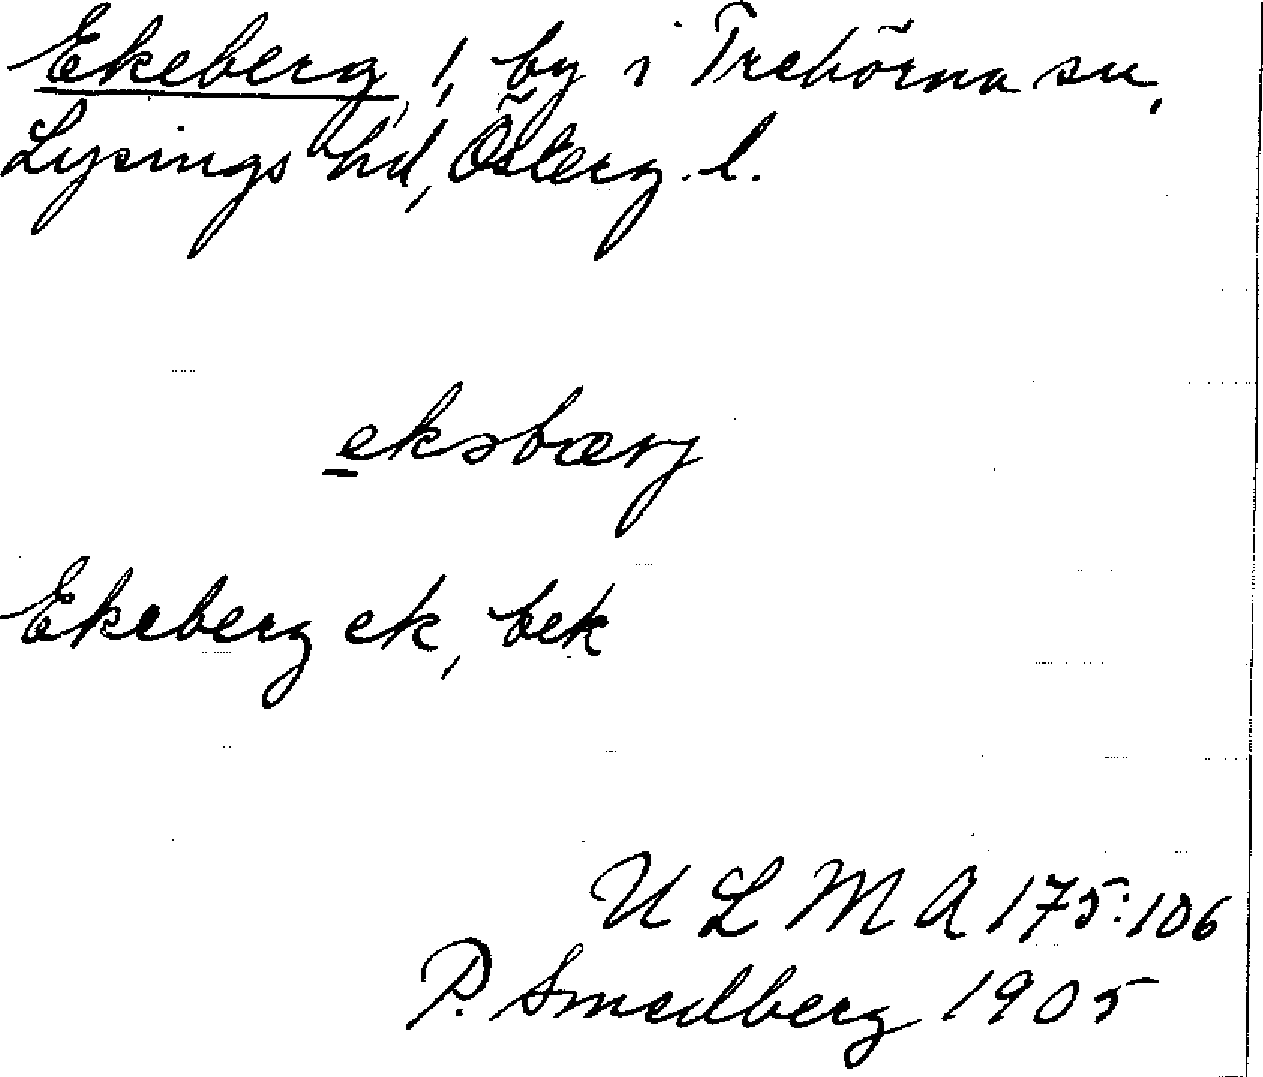 Ekeberg, !, by i Trehörna sn,
Lysings hd, Österg. l.
ekəbærj
Ekeberg ek, bek
U L M A 175:106
P. Smedberg 1905